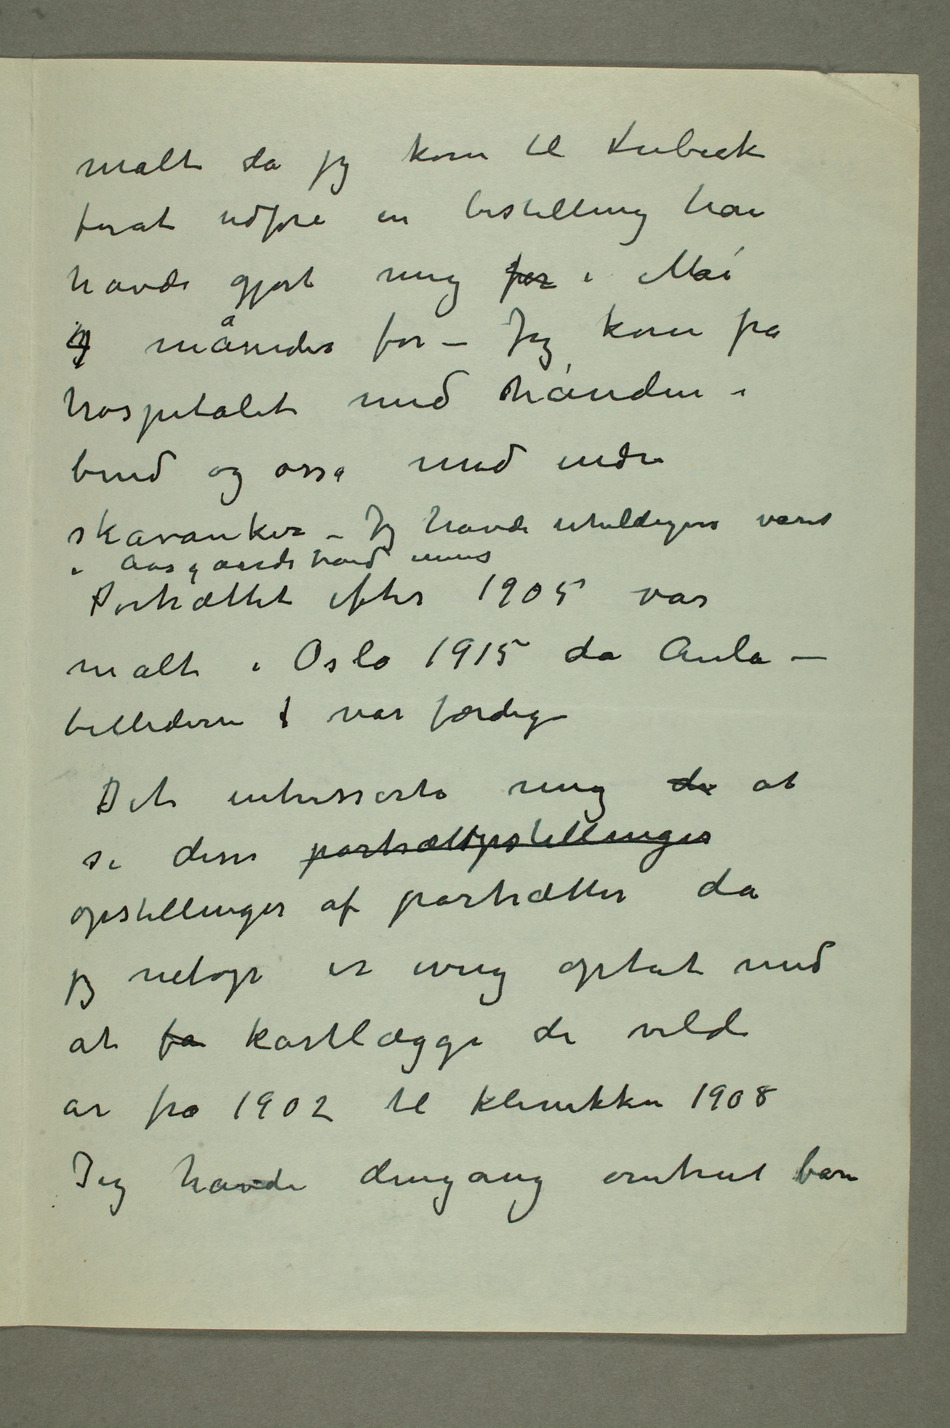 malt da jeg kom til Lubeck
forat udføre en bestilling han
havde gjort mig for i Mai
4 måneder før – Jeg kom fra
hospitalet med hånden i
bind og også med indre
skavanker – Jeg havde uheldigvis været
i Aasgaardstrand
Portrættet efter 1905 var
malt i Oslo 1915 da Aula –
billederne var færdige
Det intresserte mig de at
se disse portrætopstillinger
opstillinger af portrætter da
jeg netop er ivrig optat med
at få kartlægge de vilde
år fra 1902 til klinikken 1908
Jeg havde dengang omtrent bare